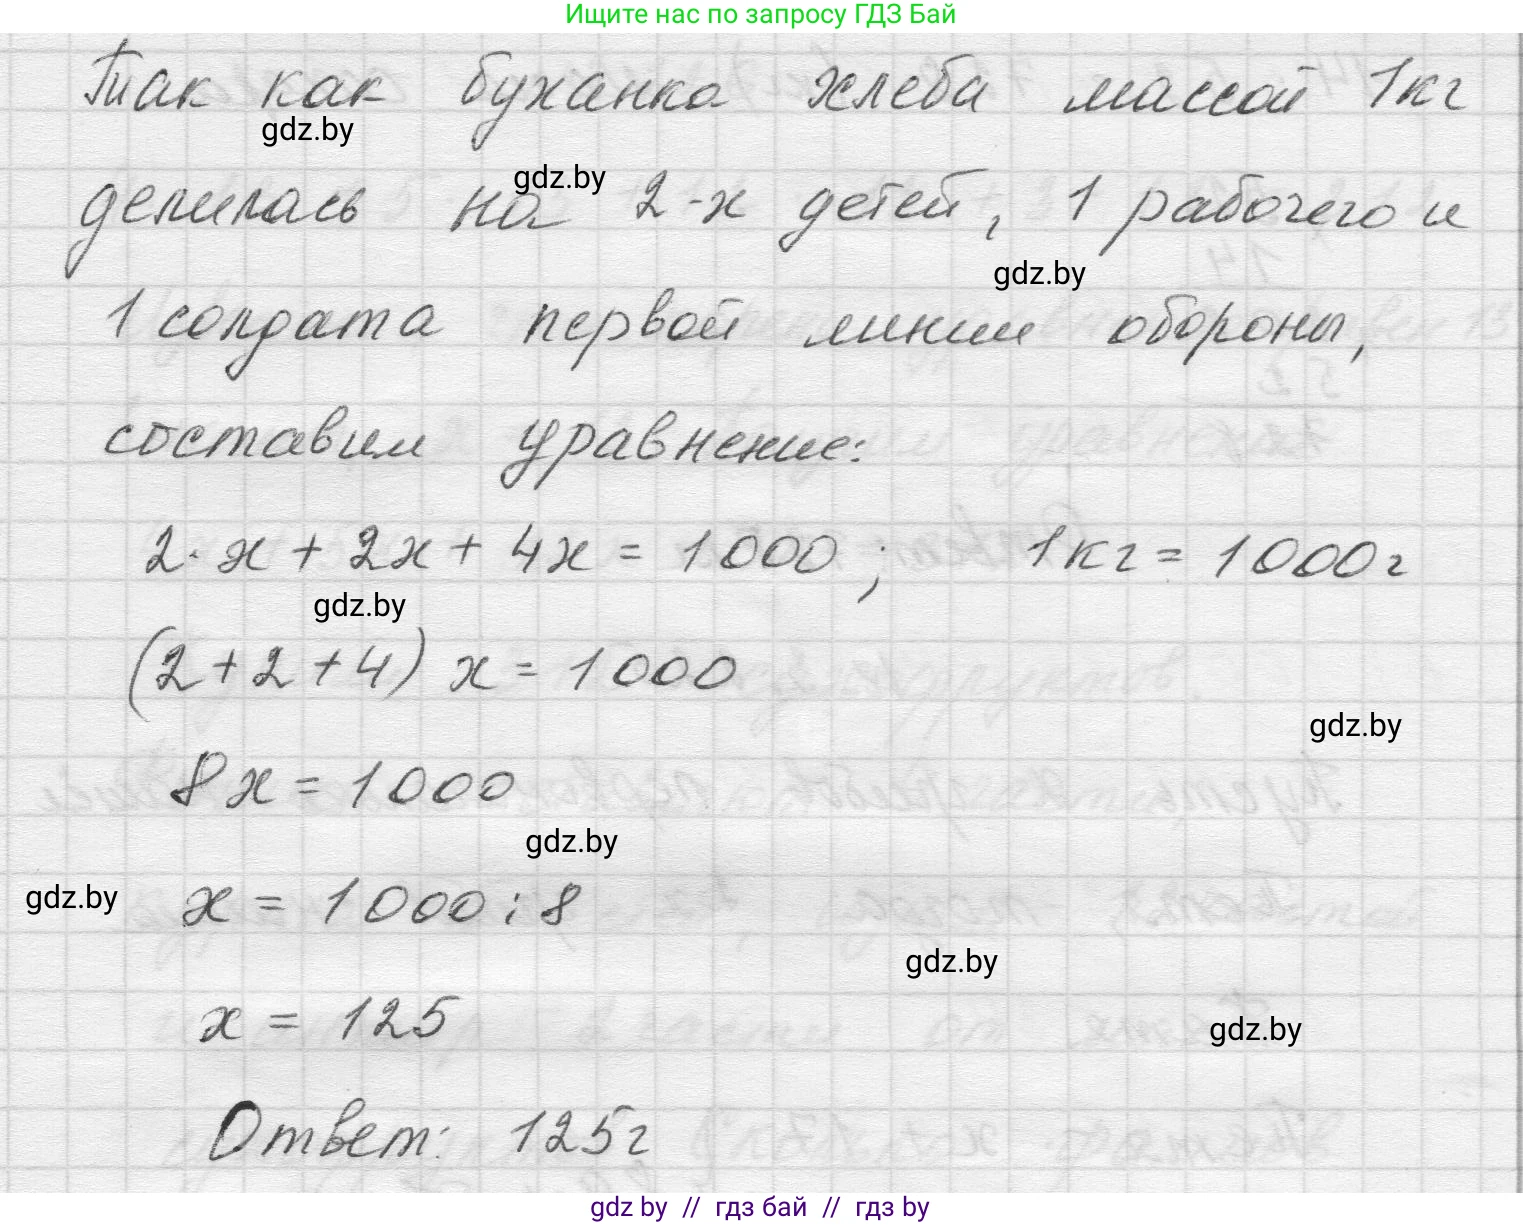 Ищите нас по запросу ГДЗ Бай
Так как буханка хлеба массой 1кг
gdz.by
gdz.by
делилась на 2-х детей, 1 рабочего и
gdz.by
1 солдата первой линии обороны,
составим уравнение:
2·x + 2x + 4x = 1000; 1кг = 1000г
gdz.by
(2+2+4) x = 1000
gdz.by
8x = 1000
gdz.by
gdz.by
x = 1000 : 8
gdz.by
x = 125
gdz.by
Ответ: 125г
gdz by // гдз бай // гдз by